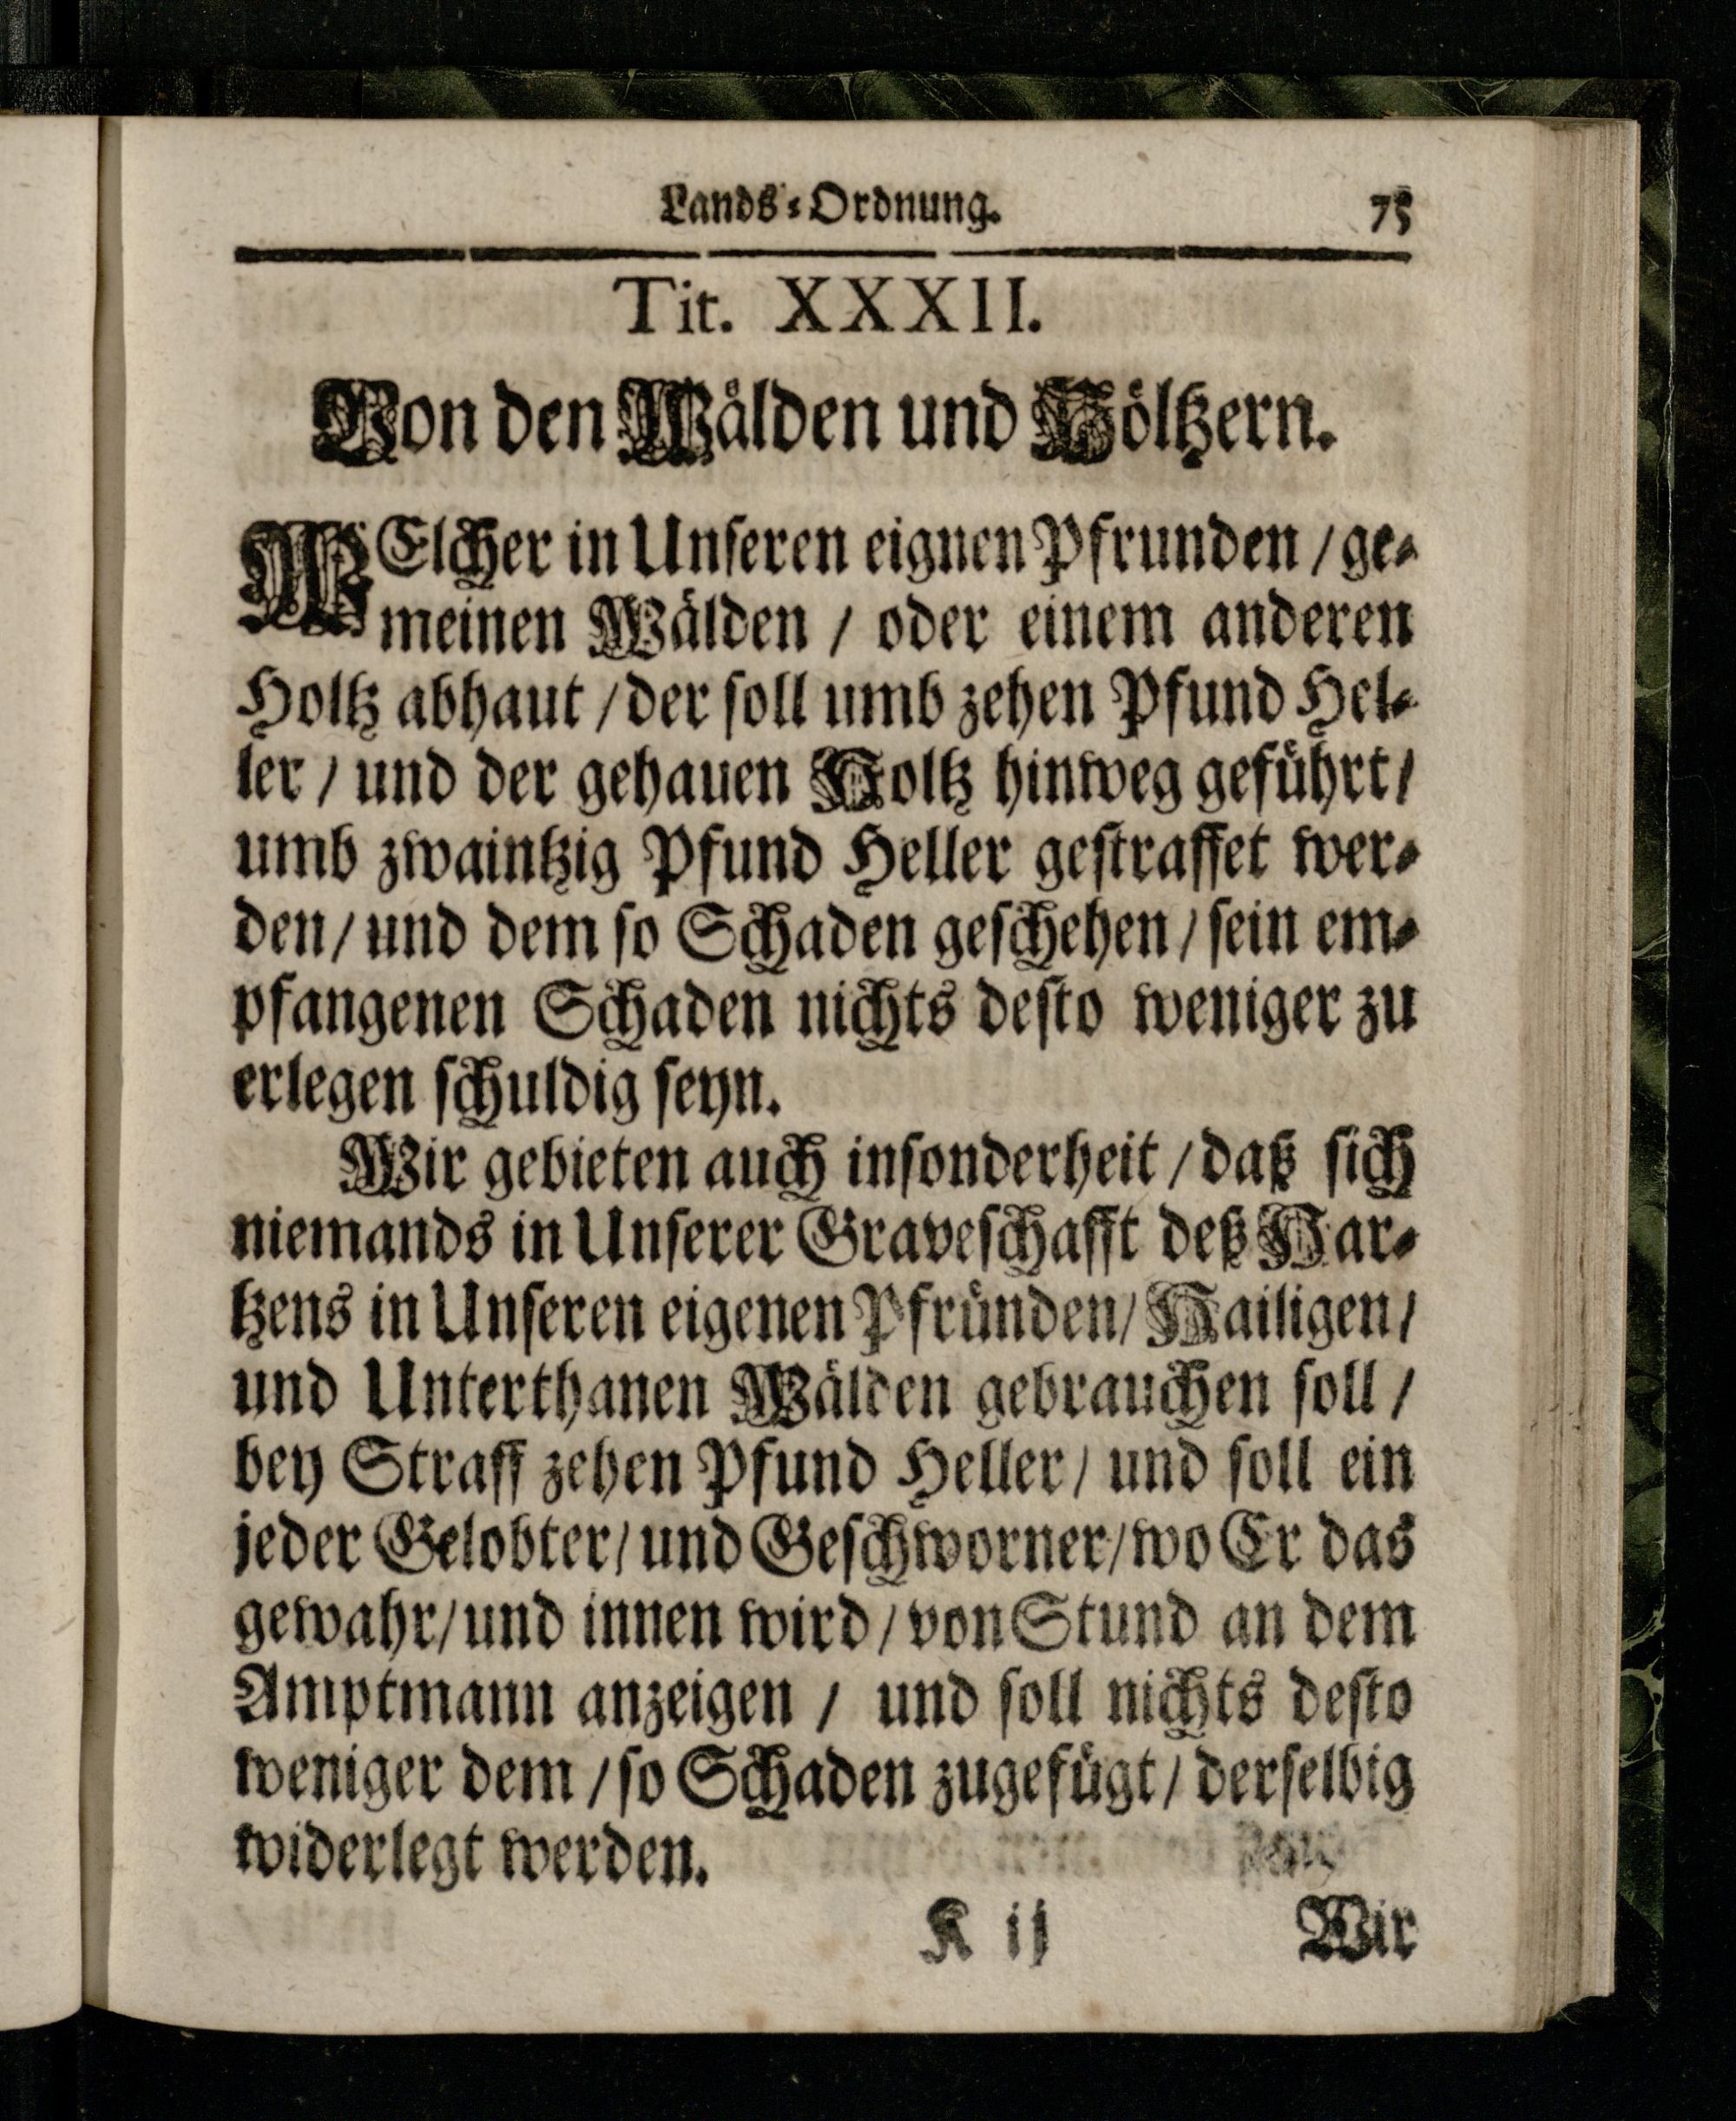 Lands-Ordnung. 75
Tit. XXXII.
Von den Wälden und Höltzern.
WElcher in Unseren eignen Pfrunden / ge-
meinen Wälden / oder einem anderen
Holtz abhaut / der soll umb zehen Pfund Hel-
ler / und der gehauen Holtz hinweg geführt /
umb zwaintzig Pfund Heller gestraffet wer-
den / und dem so Schaden geschehen / sein em-
pfangenen Schaden nichts desto weniger zu
erlegen schuldig seyn.
Wir gebieten auch insonderheit / daß sich
niemands in Unserer Graveschafft deß Har-
tzens in Unseren eigenen Pfründen / Hailigen /
und Unterthanen Wälden gebrauchen soll /
bey Straff zehen Pfund Heller / und soll ein
jeder Gelobter / und Geschworner / wo Er das
gewahr / und innen wird / von Stund an dem
Amptmann anzeigen / und soll nichts desto
weniger dem / so Schaden zugefügt / derselbig
widerlegt werden.
K ij Wir